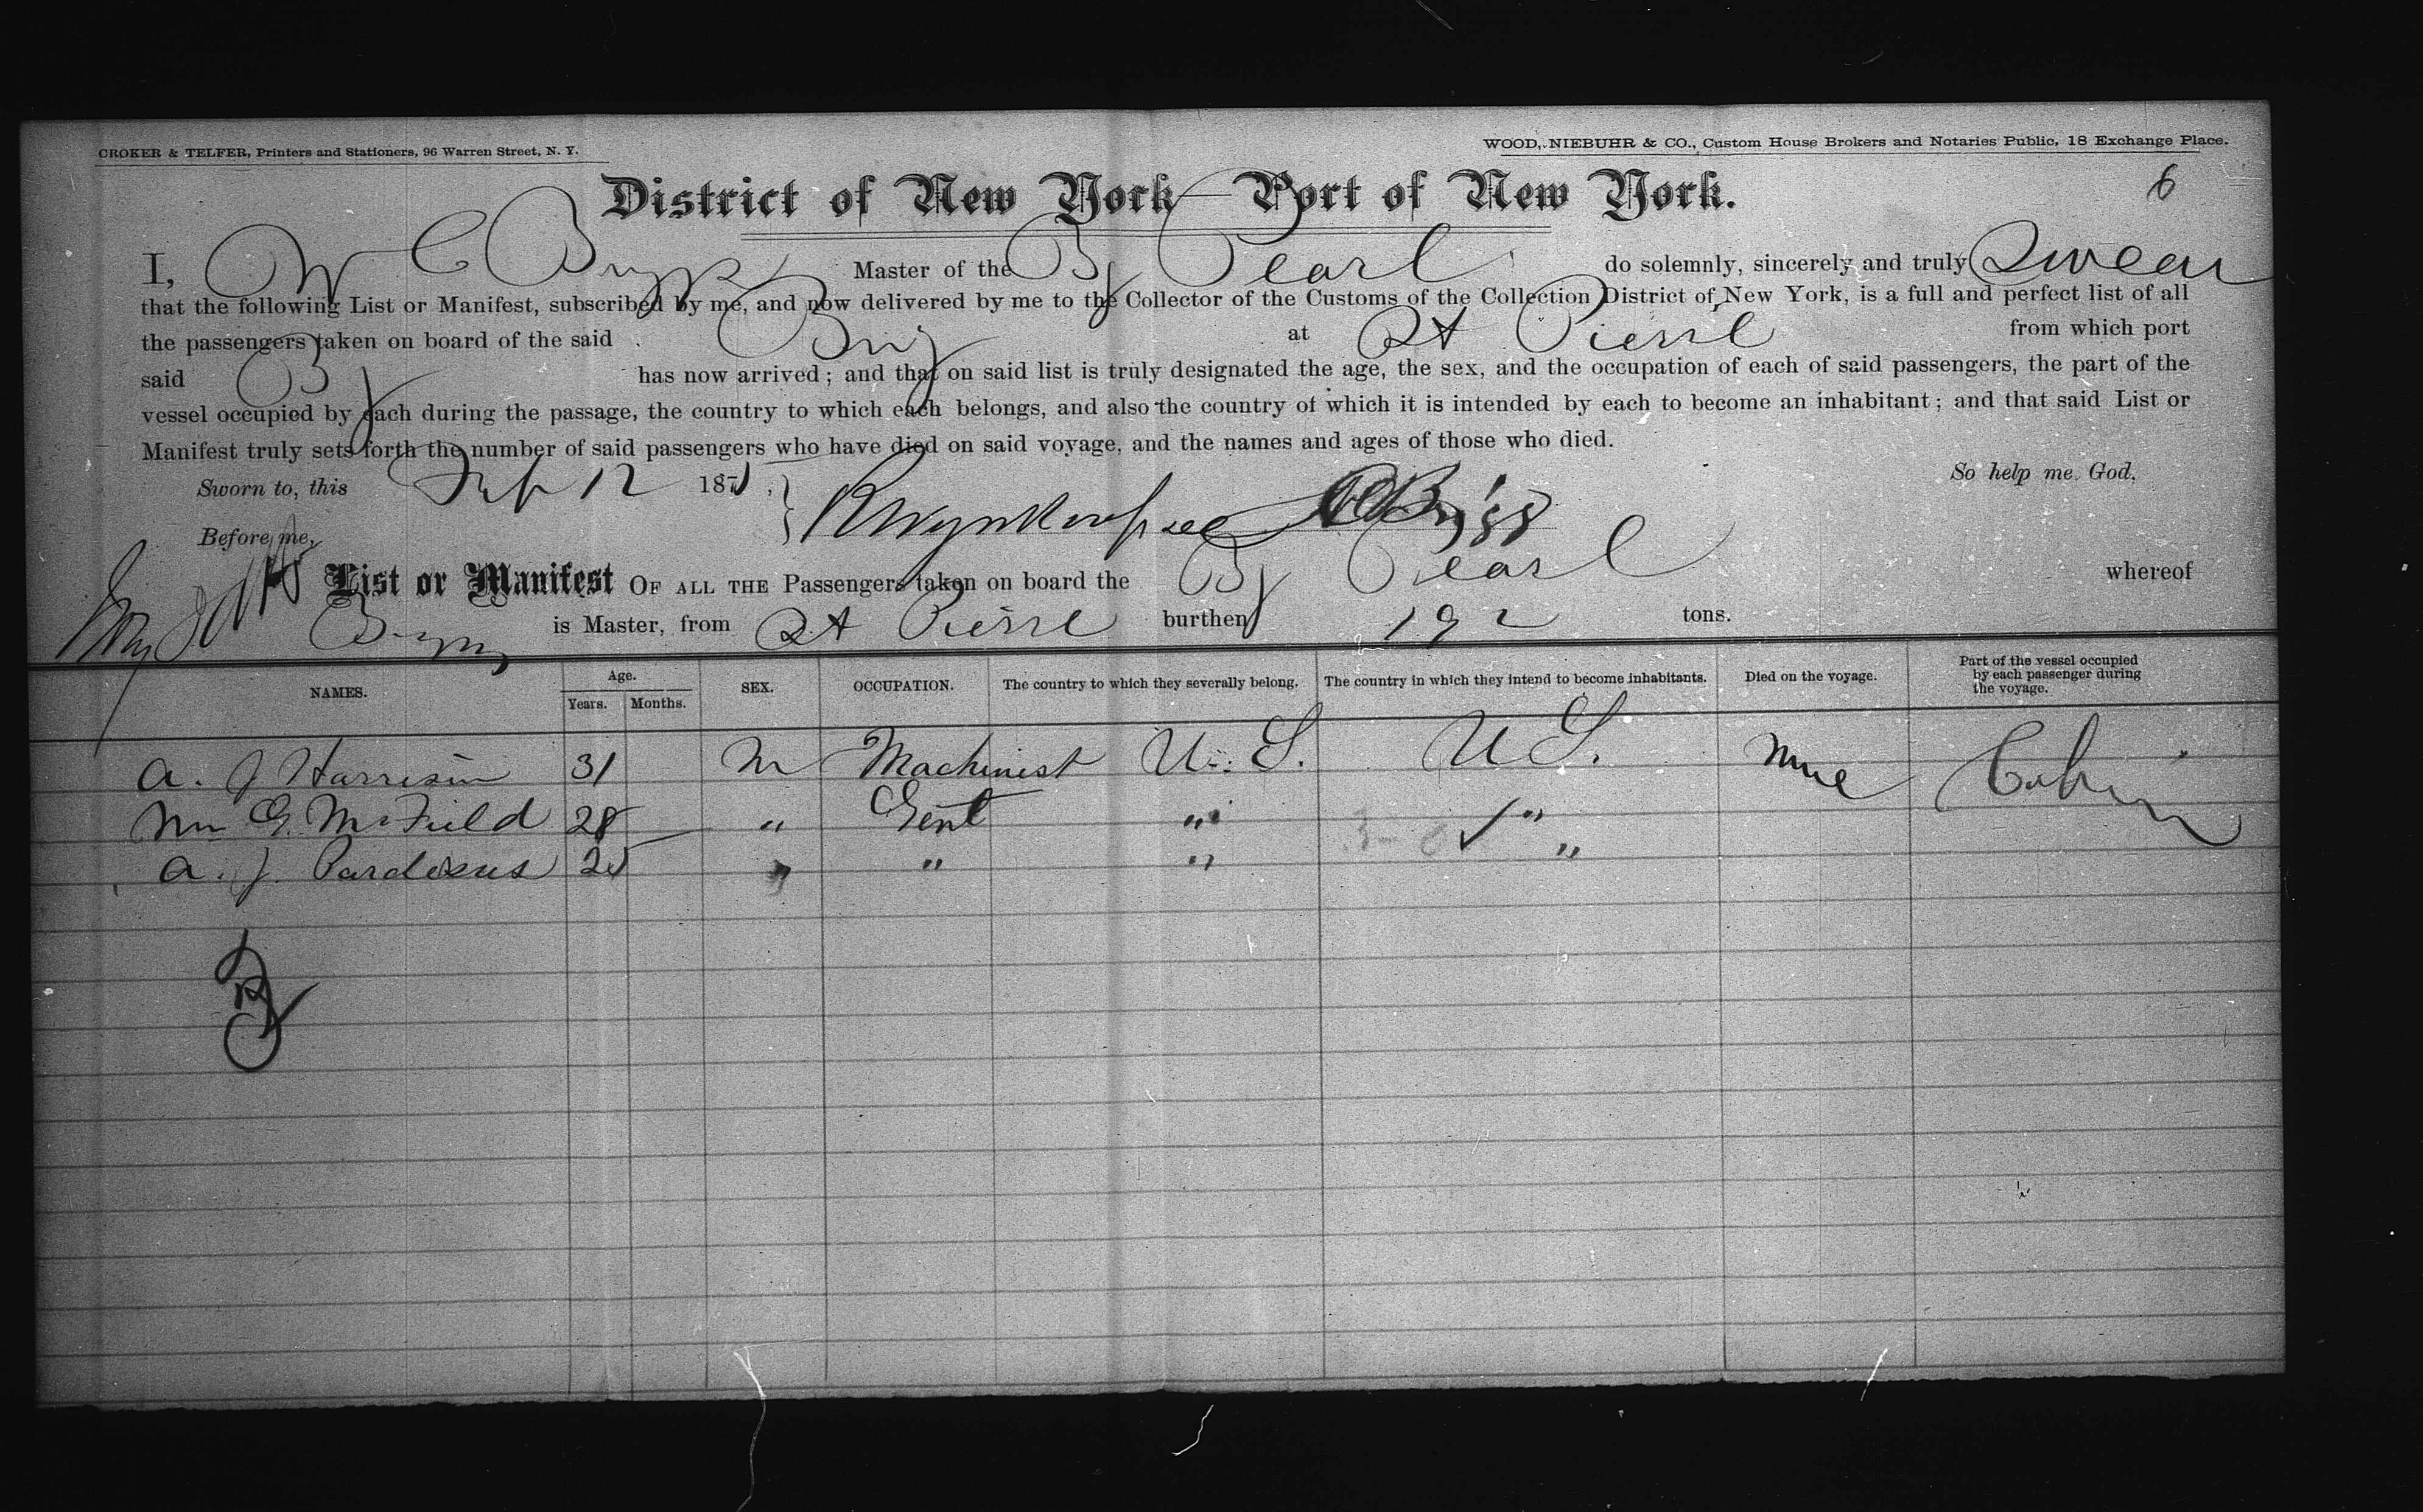 CROKER & TELFER, Printers and Stationers, 96 Warren Street, N. Y.
WOOD, NIEBUHR & CO., Custom House Brokers and Notaries Public, 18 Exchange Place.
District of New York—Port of New York.
6
I, W C Briggs Master of the Bg Pearl do solemnly, sincerely and truly Swear
that the following List or Manifest, subscribed by me, and now delivered by me to the Collector of the Customs of the Collection District of New York, is a full and perfect list of all
the passengers taken on board of the said Brig at St Pierre from which port
said Bg has now arrived; and that on said list is truly designated the age, the sex, and the occupation of each of said passengers, the part of the
vessel occupied by each during the passage, the country to which each belongs, and also the country of which it is intended by each to become an inhabitant; and that said List or
Manifest truly sets forth the number of said passengers who have died on said voyage, and the names and ages of those who died.
Sworn to, this 12 187 So help me God.
Before me, Briggs
List or Manifest OF ALL THE Passengers taken on board the Bg Pearl whereof
Briggs is Master, from St Pierre burthen 192 tons.
NAMES. Age. Years. Months. SEX. OCCUPATION. The country to which they severally belong. The country in which they intend to become inhabitants. Died on the voyage. Part of the vessel occupied by each passenger during the voyage.
A. J Harrison 31 M Machinist U. S. U S. None Cabin
Wm G. McField 28 " Gent " "
A. J. Pardesus 25 " " " "